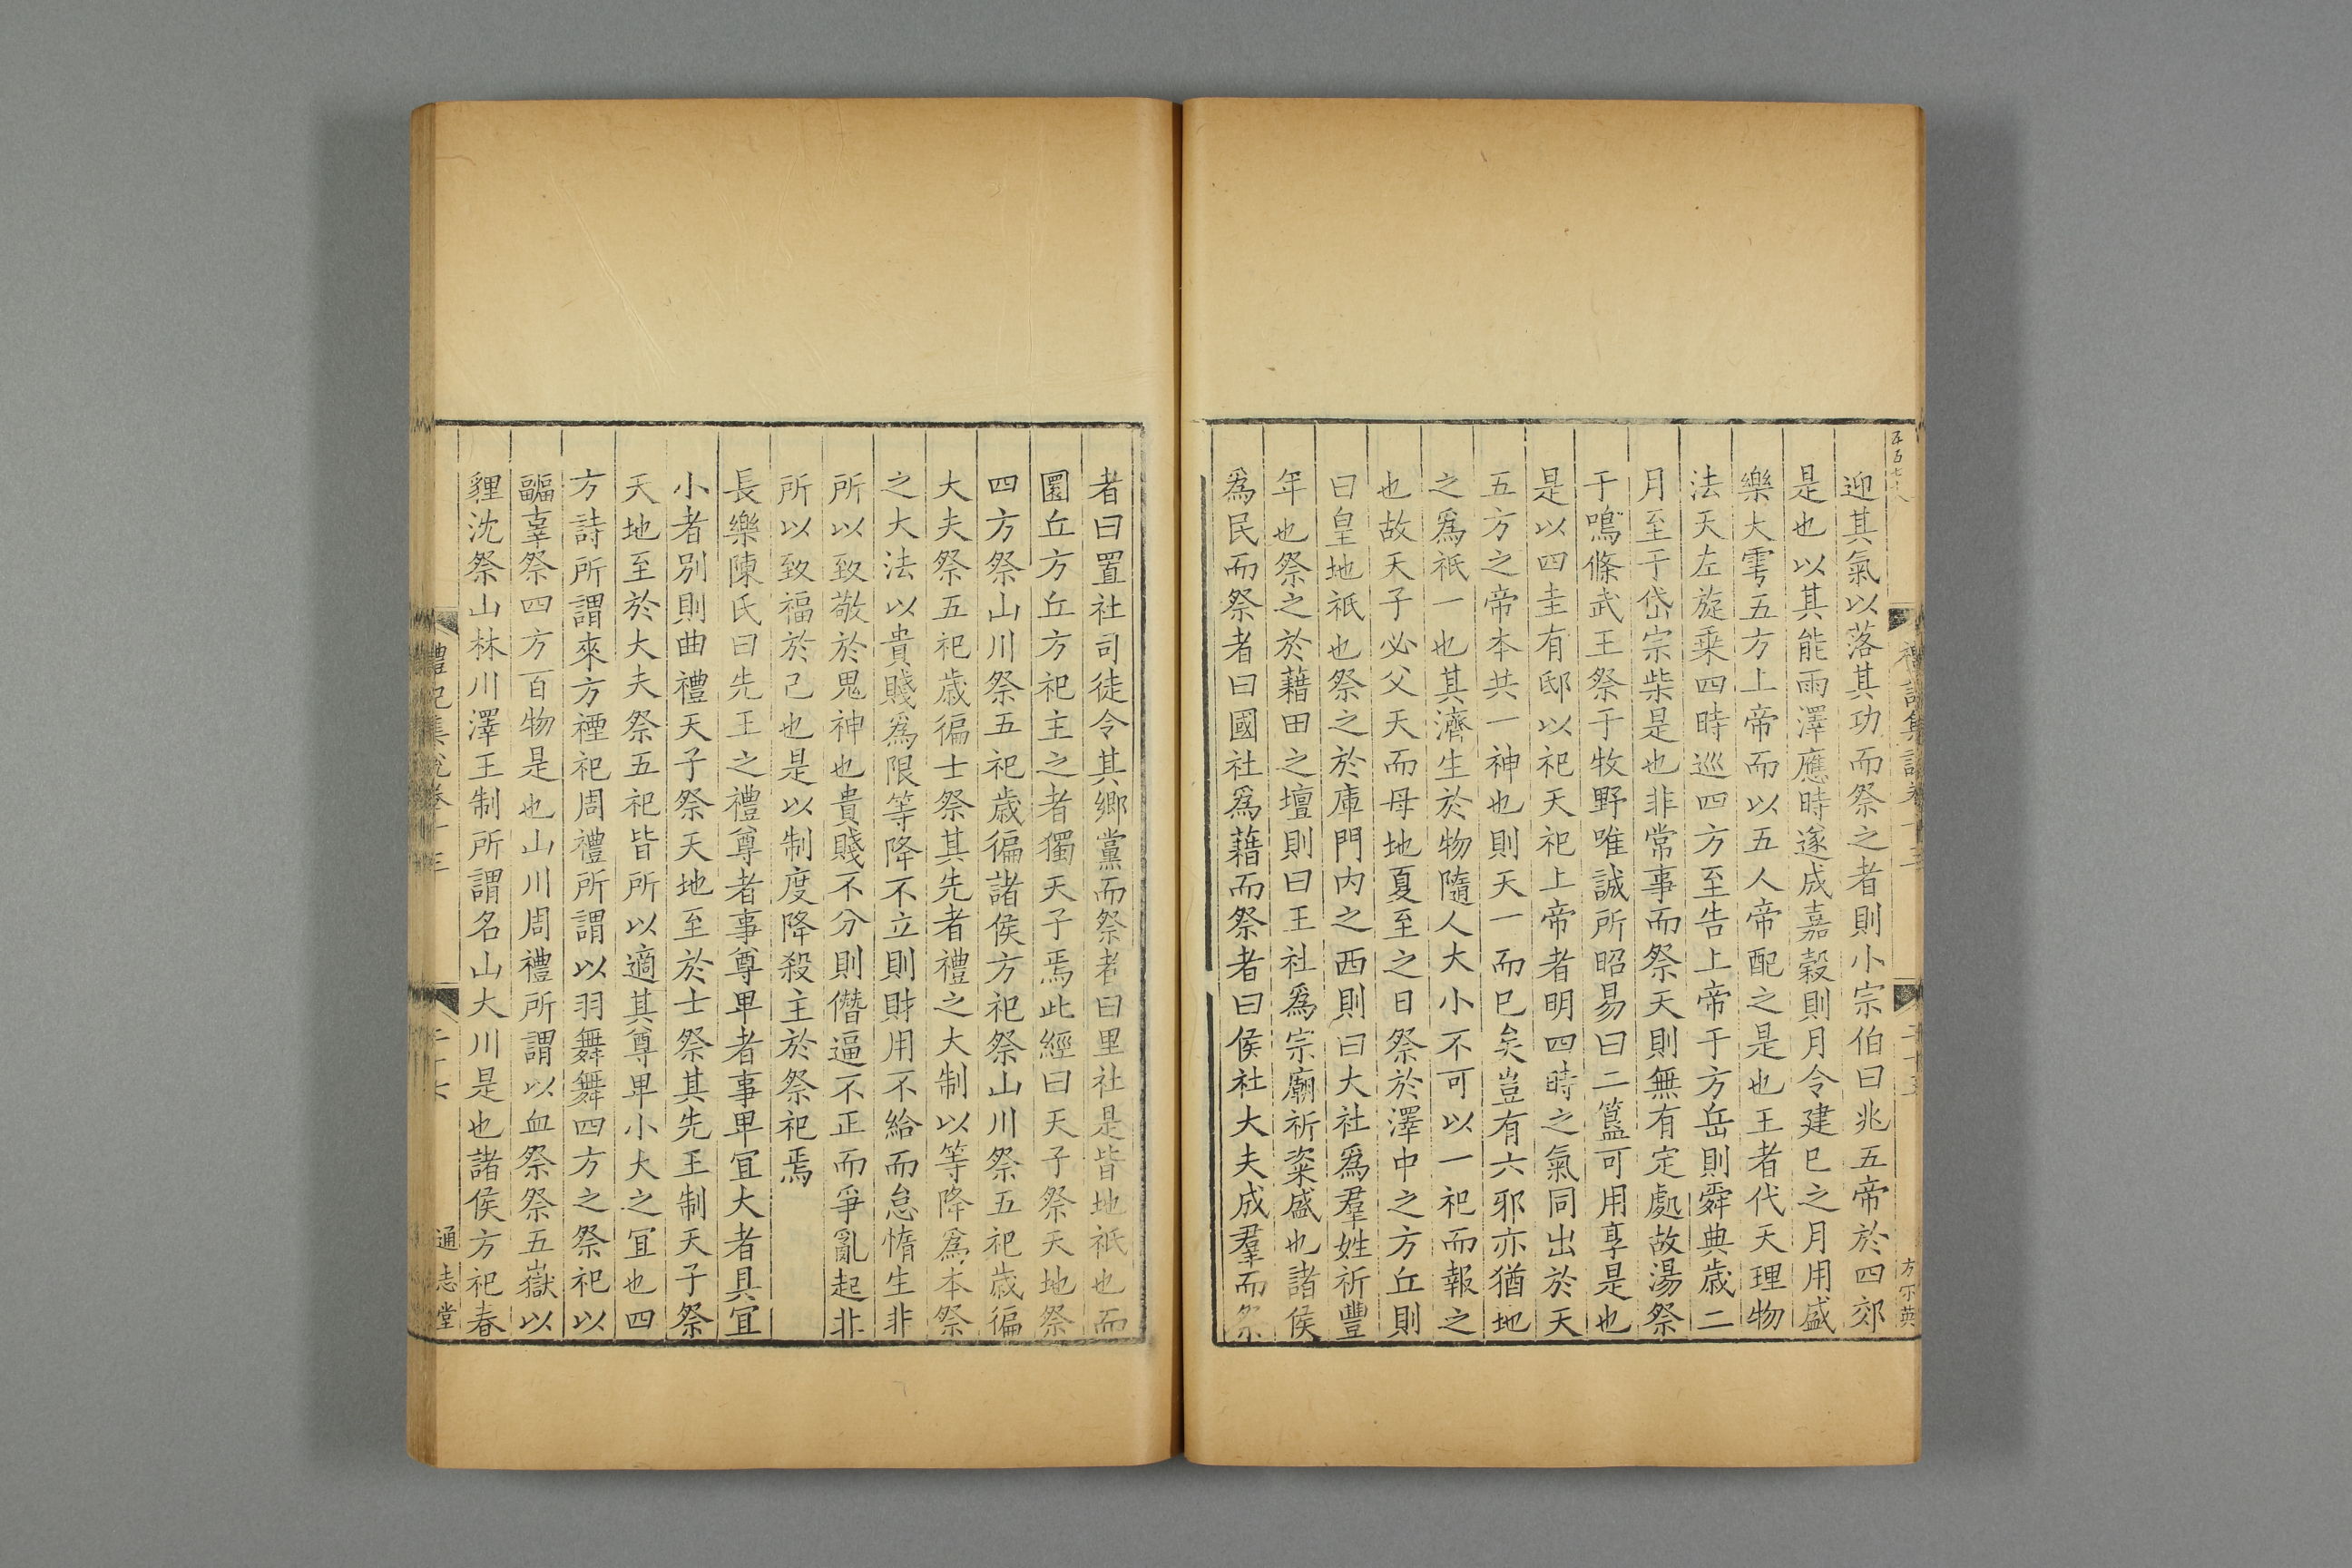 迎其氣以落其功而祭之者則小宗伯曰兆五帝於四郊
是也以其能雨澤應時遂成嘉穀則月令建巳之月用盛
樂大雩五方上帝而以五人帝配之是也王者代天理物
法天左旋乘四時巡四方至告上帝于方岳則舜典歲二
月至于岱宗柴是也非常事而祭天則無有定處故湯祭
于鳴條武王祭于牧野唯誠所昭易曰二簋可用享是也
是以四圭有邸以祀天祀上帝者明四時之氣同出於天
五方之帝本共一神也則天一而巳矣豈有六邪亦猶地
之爲祇一也其濟生於物隨人大小不可以一祀而報之
也故天子必父天而母地夏至之日祭於澤中之方丘則
曰皇地祇也祭之於庫門内之西則曰大社爲羣姓祈豐
年也祭之於藉田之壇則曰王社爲宗廟祈粢盛也諸侯
爲民而祭者曰國社爲藉而祭者曰侯社大夫成羣而祭
者曰置社司徒令其鄉黨而祭者曰里社是皆地祇也而
圜丘方丘方祀主之者獨天子焉此經曰天子祭天地祭
四方祭山川祭五祀歲徧諸侯方祀祭山川祭五祀歲徧
大夫祭五祀歲徧士祭其先者禮之大制以等降爲本祭
之大法以貴賤爲限等降不立則財用不給而怠惰生非
所以致敬於鬼神也貴賤不分則僭逼不正而爭亂起非
所以致福於己也是以制度降殺主於祭祀焉
長樂陳氏曰先王之禮尊者事尊卑者事卑宜大者具宜
小者別則曲禮天子祭天地至於士祭其先王制天子祭
天地至於大夫祭五祀皆所以適其尊卑小大之宜也四
方詩所謂來方禋祀周禮所謂以羽舞舞四方之祭祀以
疈辜祭四方百物是也山川周禮所謂以血祭祭五嶽以
貍沈祭山林川澤王制所謂名山大川是也諸侯方祀春
禮記集說卷十三
通志堂